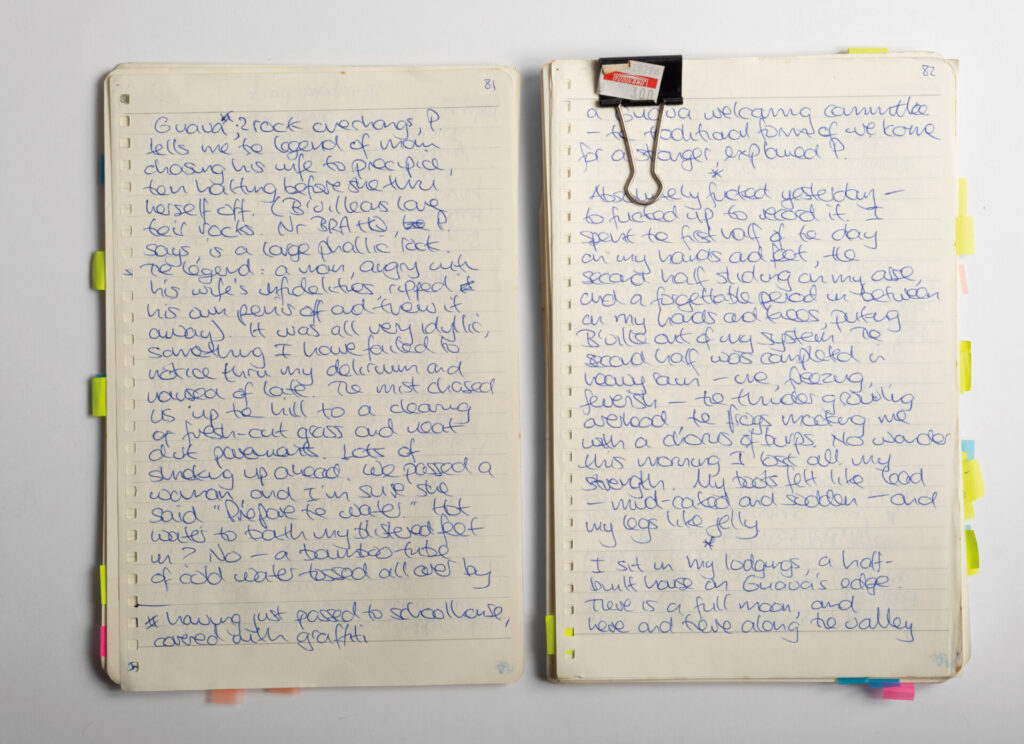 81
Guava*, 2 rock overhangs, P.
tells me te legend of man
chasing his wife to precipice,
ten halting before she thru
herself off. (B'villeans love
teir rocks. Nr , P.
says, is a large phallic rock.
Te legend: a man, angry with
his wife's infidelities, ripped
his own penis off ad threw it
away). It was all very idyllic,
something I have failed to
notice thru my delirium and
nausea of late. Te mist chased
us up te hill to a clearing
of fresh-cut grass and neat
dirt pavements. Lots of
smoking up ahead. We passed a
woman, and I'm sure she
said "Prepare te water". Hot
water to bath my blistered feet
in? No – a bamboo tube
of cold water tossed all over by
* having just passed te schoolhouse,
covered with graffiti
82
300
a Guava welcoming committee
– te traditional form of welcome
for a stranger, explained P.
*
Absolutely fucked yesterday –
to fucked up to record it. I
spent te first half of te day
on my hands ad feet, the
second half sliding on my arse,
and a forgettable period in between
on my hands and knees, puking
B'ville out of my system. Te
second half was completed in
heavy rain – me, freezing,
feverish – te thunder growling
overhead te frogs mocking me
with a chorus of burps. No wonder
this morning I lost all my
strength. My boots felt like lead
– mud-caked and sodden – and
my legs like jelly
*
I sit in my lodgings, a half-
built house on Guava's edge.
There is a full moon, and
here and there along te valley